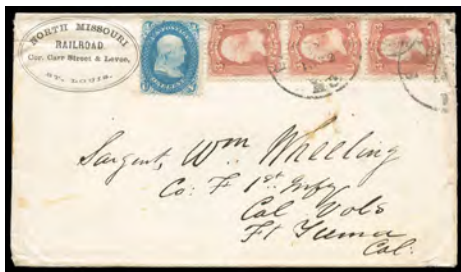 NORTH MISSOURI
RAILROAD
Cor. Carr Street & Levee,
ST. LOUIS.
Sargent, Wm Wheeling
Co: F 1st Infy
Cal Vols
Ft Yuma
Cal: